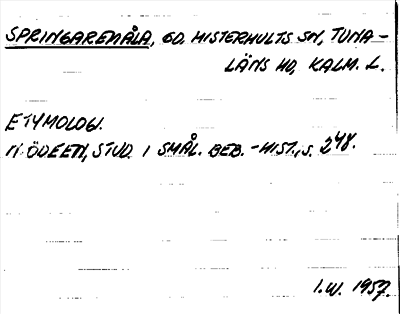 SPRINGAREMÅLA, GD. MISTERHULTS SN, TUNA-
LÄNS HD, KALM. L.
ETYMOLOGI.
N. ÖDEEN, STUD. I SMÅL. BEB.-HIST., S. 248.
I.W. 1957.